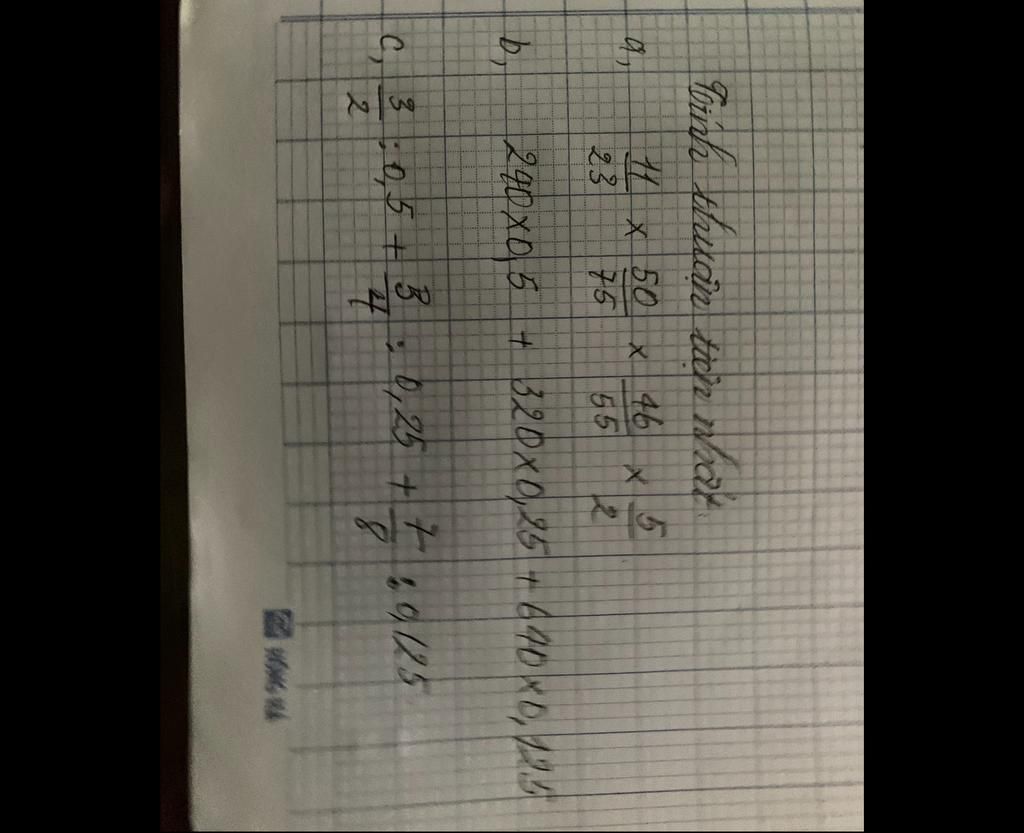 Tính thuận tiện nhất.
a, 11/23 × 50/75 × 46/55 × 5/2
b, 240×0,5 + 320×0,25 + 640×0,125
c, 3/2 : 0,5 + 3/4 : 0,25 + 7/8 : 0,125